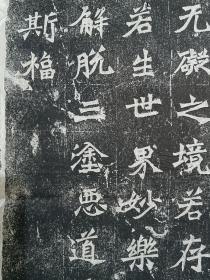 无礙之境若存
若生世界妙樂
解脱三塗恶道
斯福